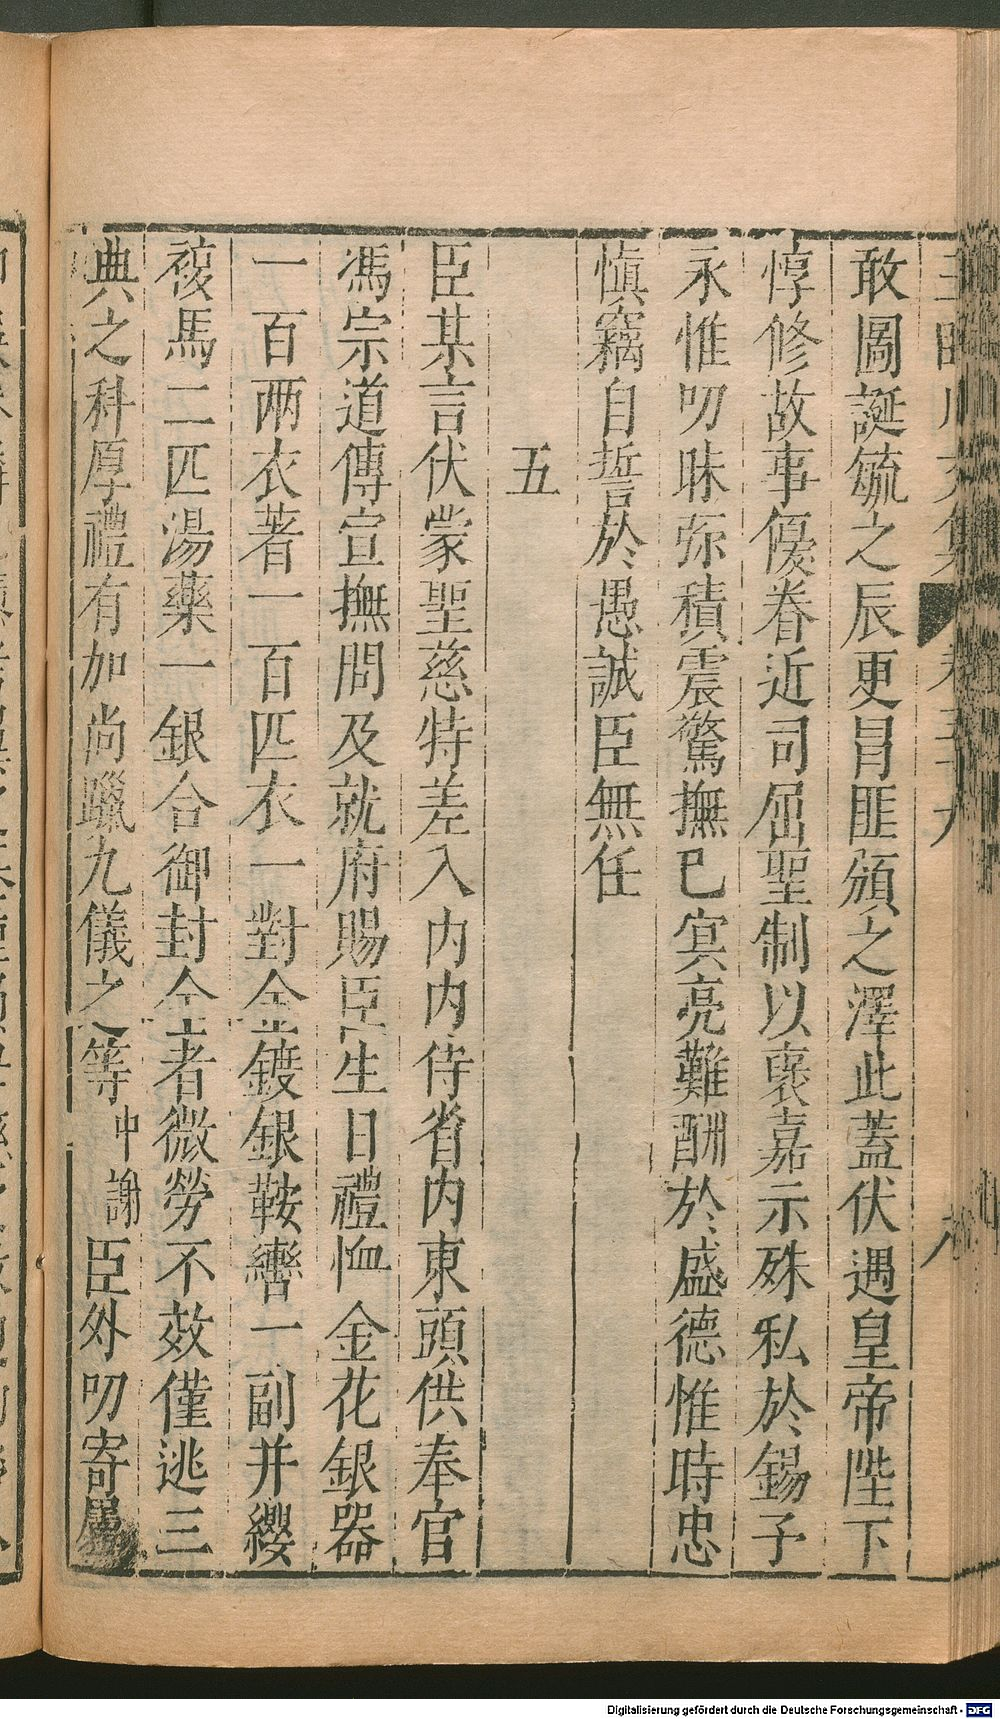 敢圖誕毓之辰更冒匪頒之澤此蓋伏遇皇帝陛下
惇修故事優眷近司屈聖制以褒嘉示殊私於錫予
永惟叨昧弥積震驚撫已寘亮難酬於盛德惟時忠
愼竊自誓於愚誠臣無任
五
臣某言伏蒙聖慈特差入内内侍省内東頭供奉官
馮宗道傳宣撫問及就府賜臣生日禮恤金花銀器
一百兩衣著一百匹衣一對金鍍銀鞍轡一副并纓
複馬二匹湯藥一銀合御封全者微勞不效僅逃三
典之科厚禮有加尚躐九儀之等中謝臣外叨寄屬
Digitalisierung gefördert durch die Deutsche Forschungsgemeinschaft - DFG